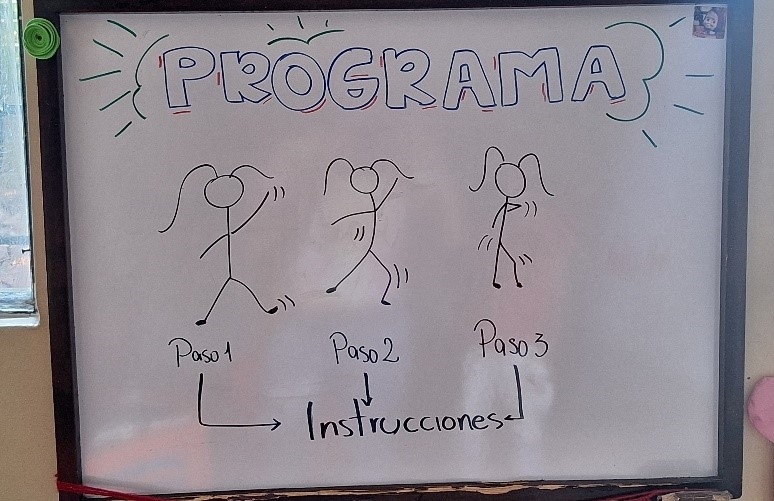 PROGRAMA
Paso 1 Paso 2 Paso 3
Instrucciones